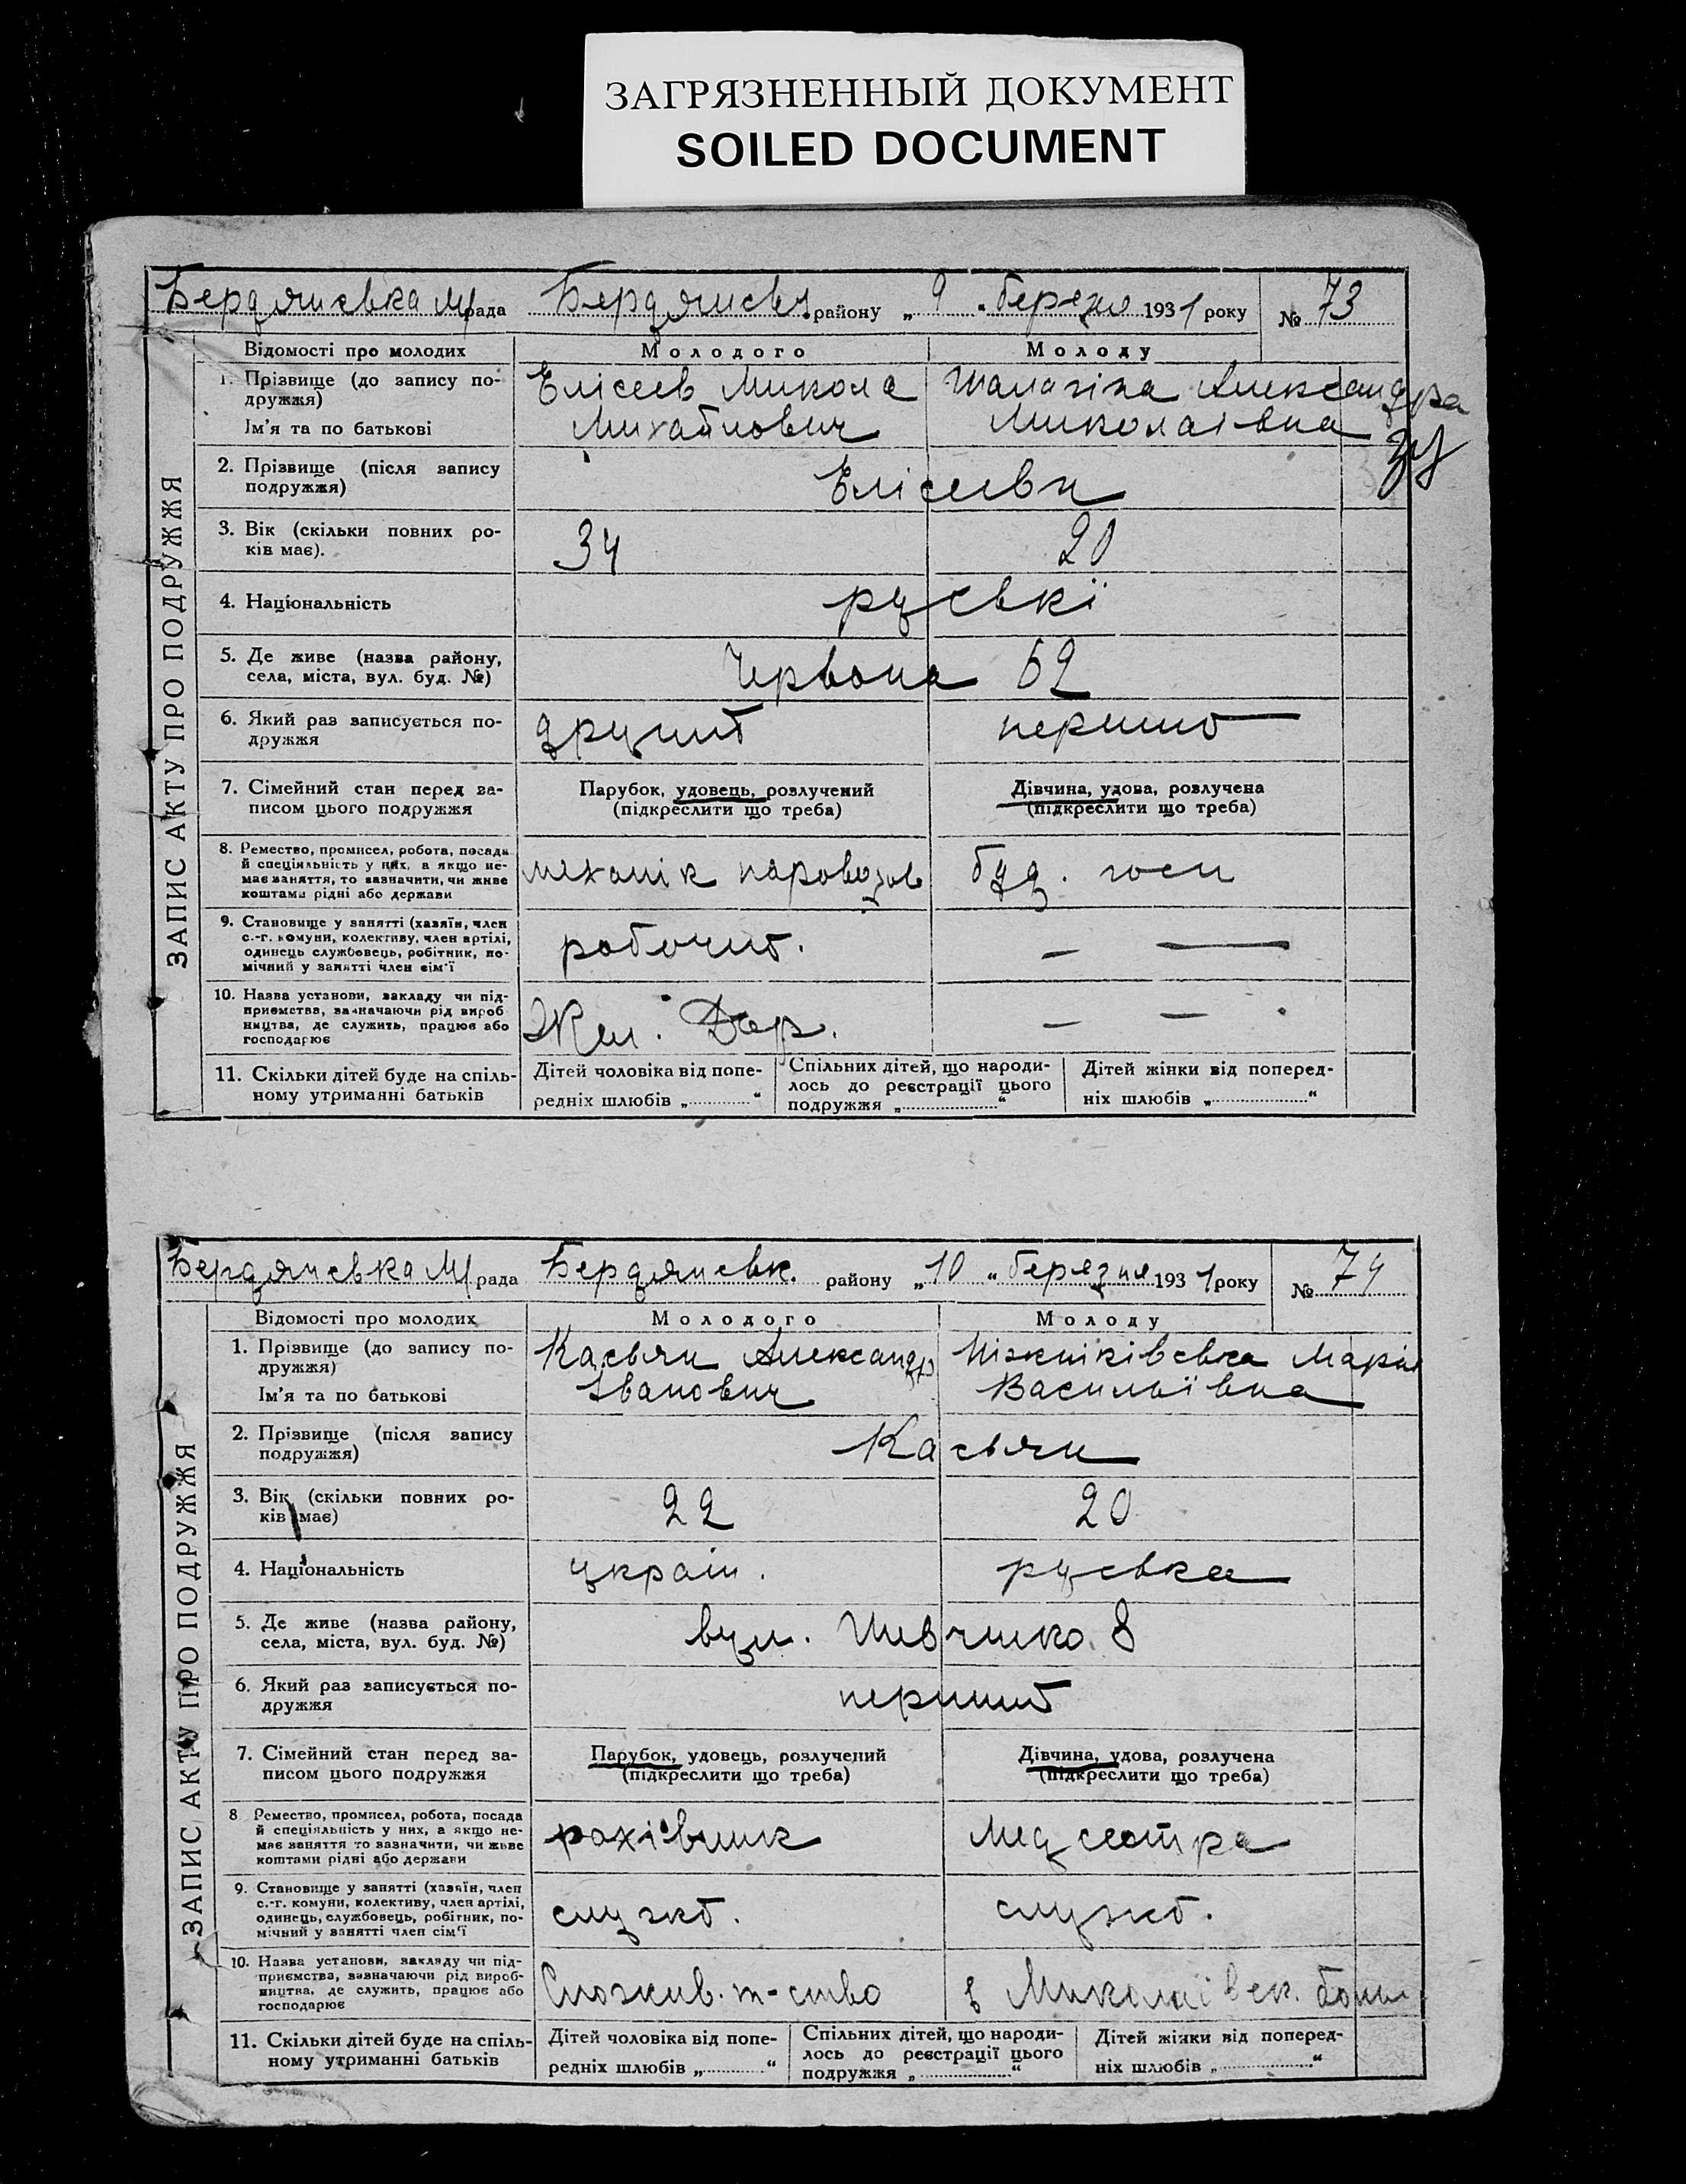 ЗАГРЯЗНЕННЫЙ ДОКУМЕНТ
SOILED DOCUMENT
ЗАПИС АКТУ ПРО ПОДРУЖЖЯ
Бердянська м/рада Бердянськ району „9“ березня 1931 року № 73
Відомості про молодих Молодого Молоду
1. Прізвище (до запису по-
дружжя)
Ім'я та по батькові
Елісеєв Микола
Михайлович
Александра
Миколаівна
2. Прізвище (після запису
подружжя)
Елісеєви
3. Вік (скільки повних ро-
ків має).
34 20
4. Національність
руські
5. Де живе (назва району,
села, міста, вул. буд. №)
Червона 62
6. Який раз записується по-
дружжя
другий перший
7. Сімейний стан перед за-
писом цього подружжя
Парубок, удовець, розлучений
(підкреслити що треба)
Дівчина, удова, розлучена
(підкреслити що треба)
8. Ремество, промисел, робота, посада
й спеціяльність у них, а якщо не-
має заняття, то зазначити, чи живе
коштами рідні або держави
механік паровозів дом. госп
9. Становище у занятті (хазяїн, член
с.-г. комуни, колективу, член артілі,
одинець службовець, робітник, по-
мічний у занятті член сім'ї
робочий. — —
10. Назва установи, закладу чи під-
приємства, зазначаючи рід вироб
ництва, де служить, працює або
господарює
Жел. Дор. — —
11. Скільки дітей буде на спіль-
ному утриманні батьків
Дітей чоловіка від попе-
редніх шлюбів „............“
Спільних дітей, що народи-
лось до реєстрації цього
подружжя „............“
Дітей жінки від поперед-
ніх шлюбів „............“
ЗАПИС АКТУ ПРО ПОДРУЖЖЯ
Бердянська м/рада Бердянськ. району „10“ березня 1931 року № 74
Відомості про молодих Молодого Молоду
1. Прізвище (до запису по-
дружжя)
Ім'я та по батькові
Касьян Александр
Іванович
Марія
Васильївна
2. Прізвище (після запису
подружжя)
Касьян
3. Вік (скільки повних ро-
ків має)
22 20
4. Національність
україн. руська
5. Де живе (назва району,
села, міста, вул. буд. №)
вул. Шевченко 8
6. Який раз записується по-
дружжя
перший
7. Сімейний стан перед за-
писом цього подружжя
Парубок, удовець, розлучений
(підкреслити що треба)
Дівчина, удова, розлучена
(підкреслити що треба)
8 Ремество, промисел, робота, посада
й спеціяльність у них, а якщо не-
має заняття то зазначити, чи живе
коштами рідні або держави
рахівник медсестра
9. Становище у занятті (хазяїн, член
с.-г. комуни, колективу, член артілі,
одинець, службовець, робітник, по-
мічний у занятті член сім'ї
служб. служб.
10. Назва установи, закладу чи під-
приємства, зазначаючи рід вироб-
ництва, де служить, працює або
господарює
Спожив. т-ство в Миколаївск. больн
11. Скільки дітей буде на спіль-
ному утриманні батьків
Дітей чоловіка від попе-
редніх шлюбів „............“
Спільних дітей, що народи-
лось до реєстрації цього
подружжя „............“
Дітей жінки від поперед-
ніх шлюбів „............“